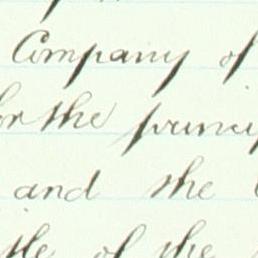 Company of
for the princip
and the
of the